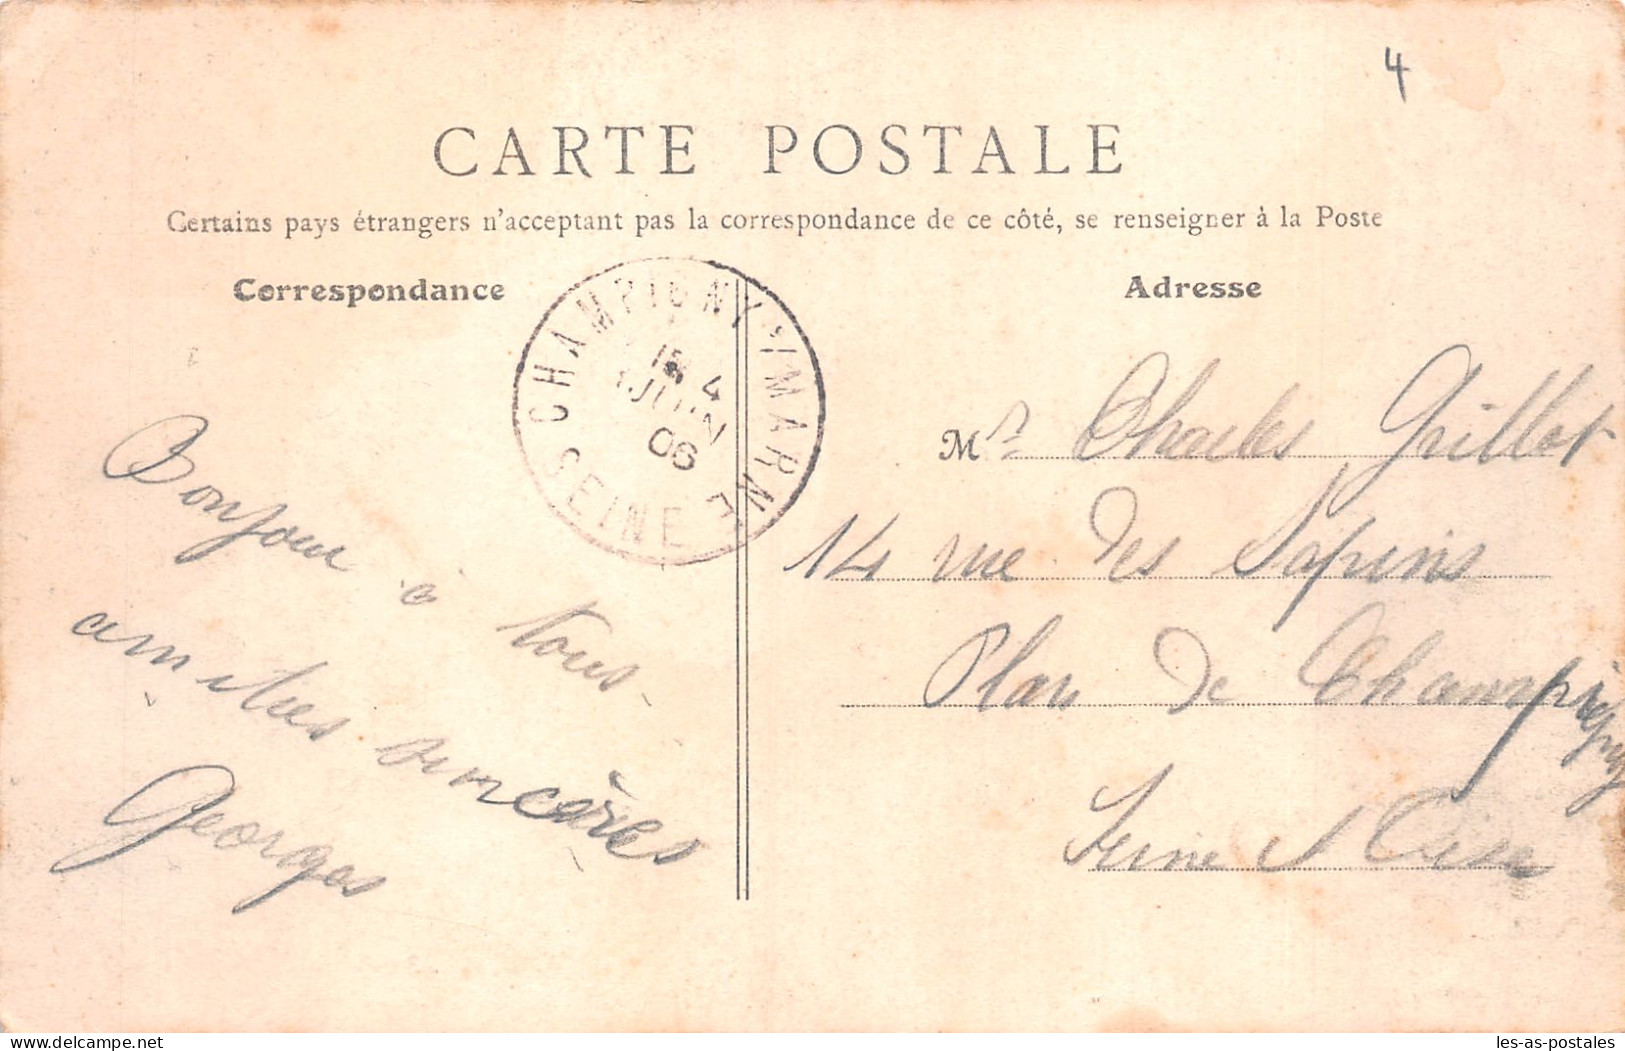 4
CARTE POSTALE
Certains pays étrangers n'acceptent pas la correspondance de ce côté, se renseigner à la Poste
Correspondance
Adresse
CHAMPIGNY S/ MARNE
4
JUIN
06
SEINE
Bonjour à tous
amitiés sincères
Georges
Mr Charles Grillot
14 rue des Sapins
Plan de Champigny
Seine et Oise
delcampe.net
les-as-postales